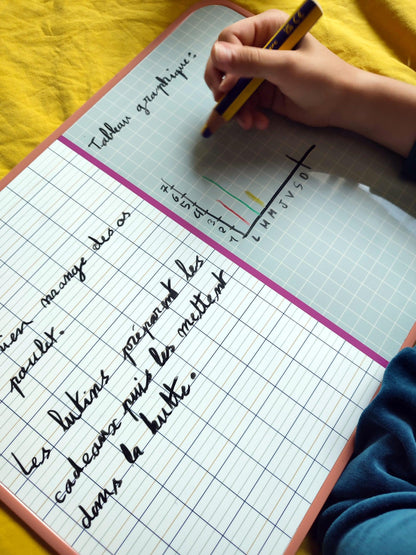 Tableau graphique:
7
6
5
4
3
2
1
L M M J V S D
ien mange des os
poulet.
Les lutins préparent les
cadeaux puis les mettent
dans la hutte.